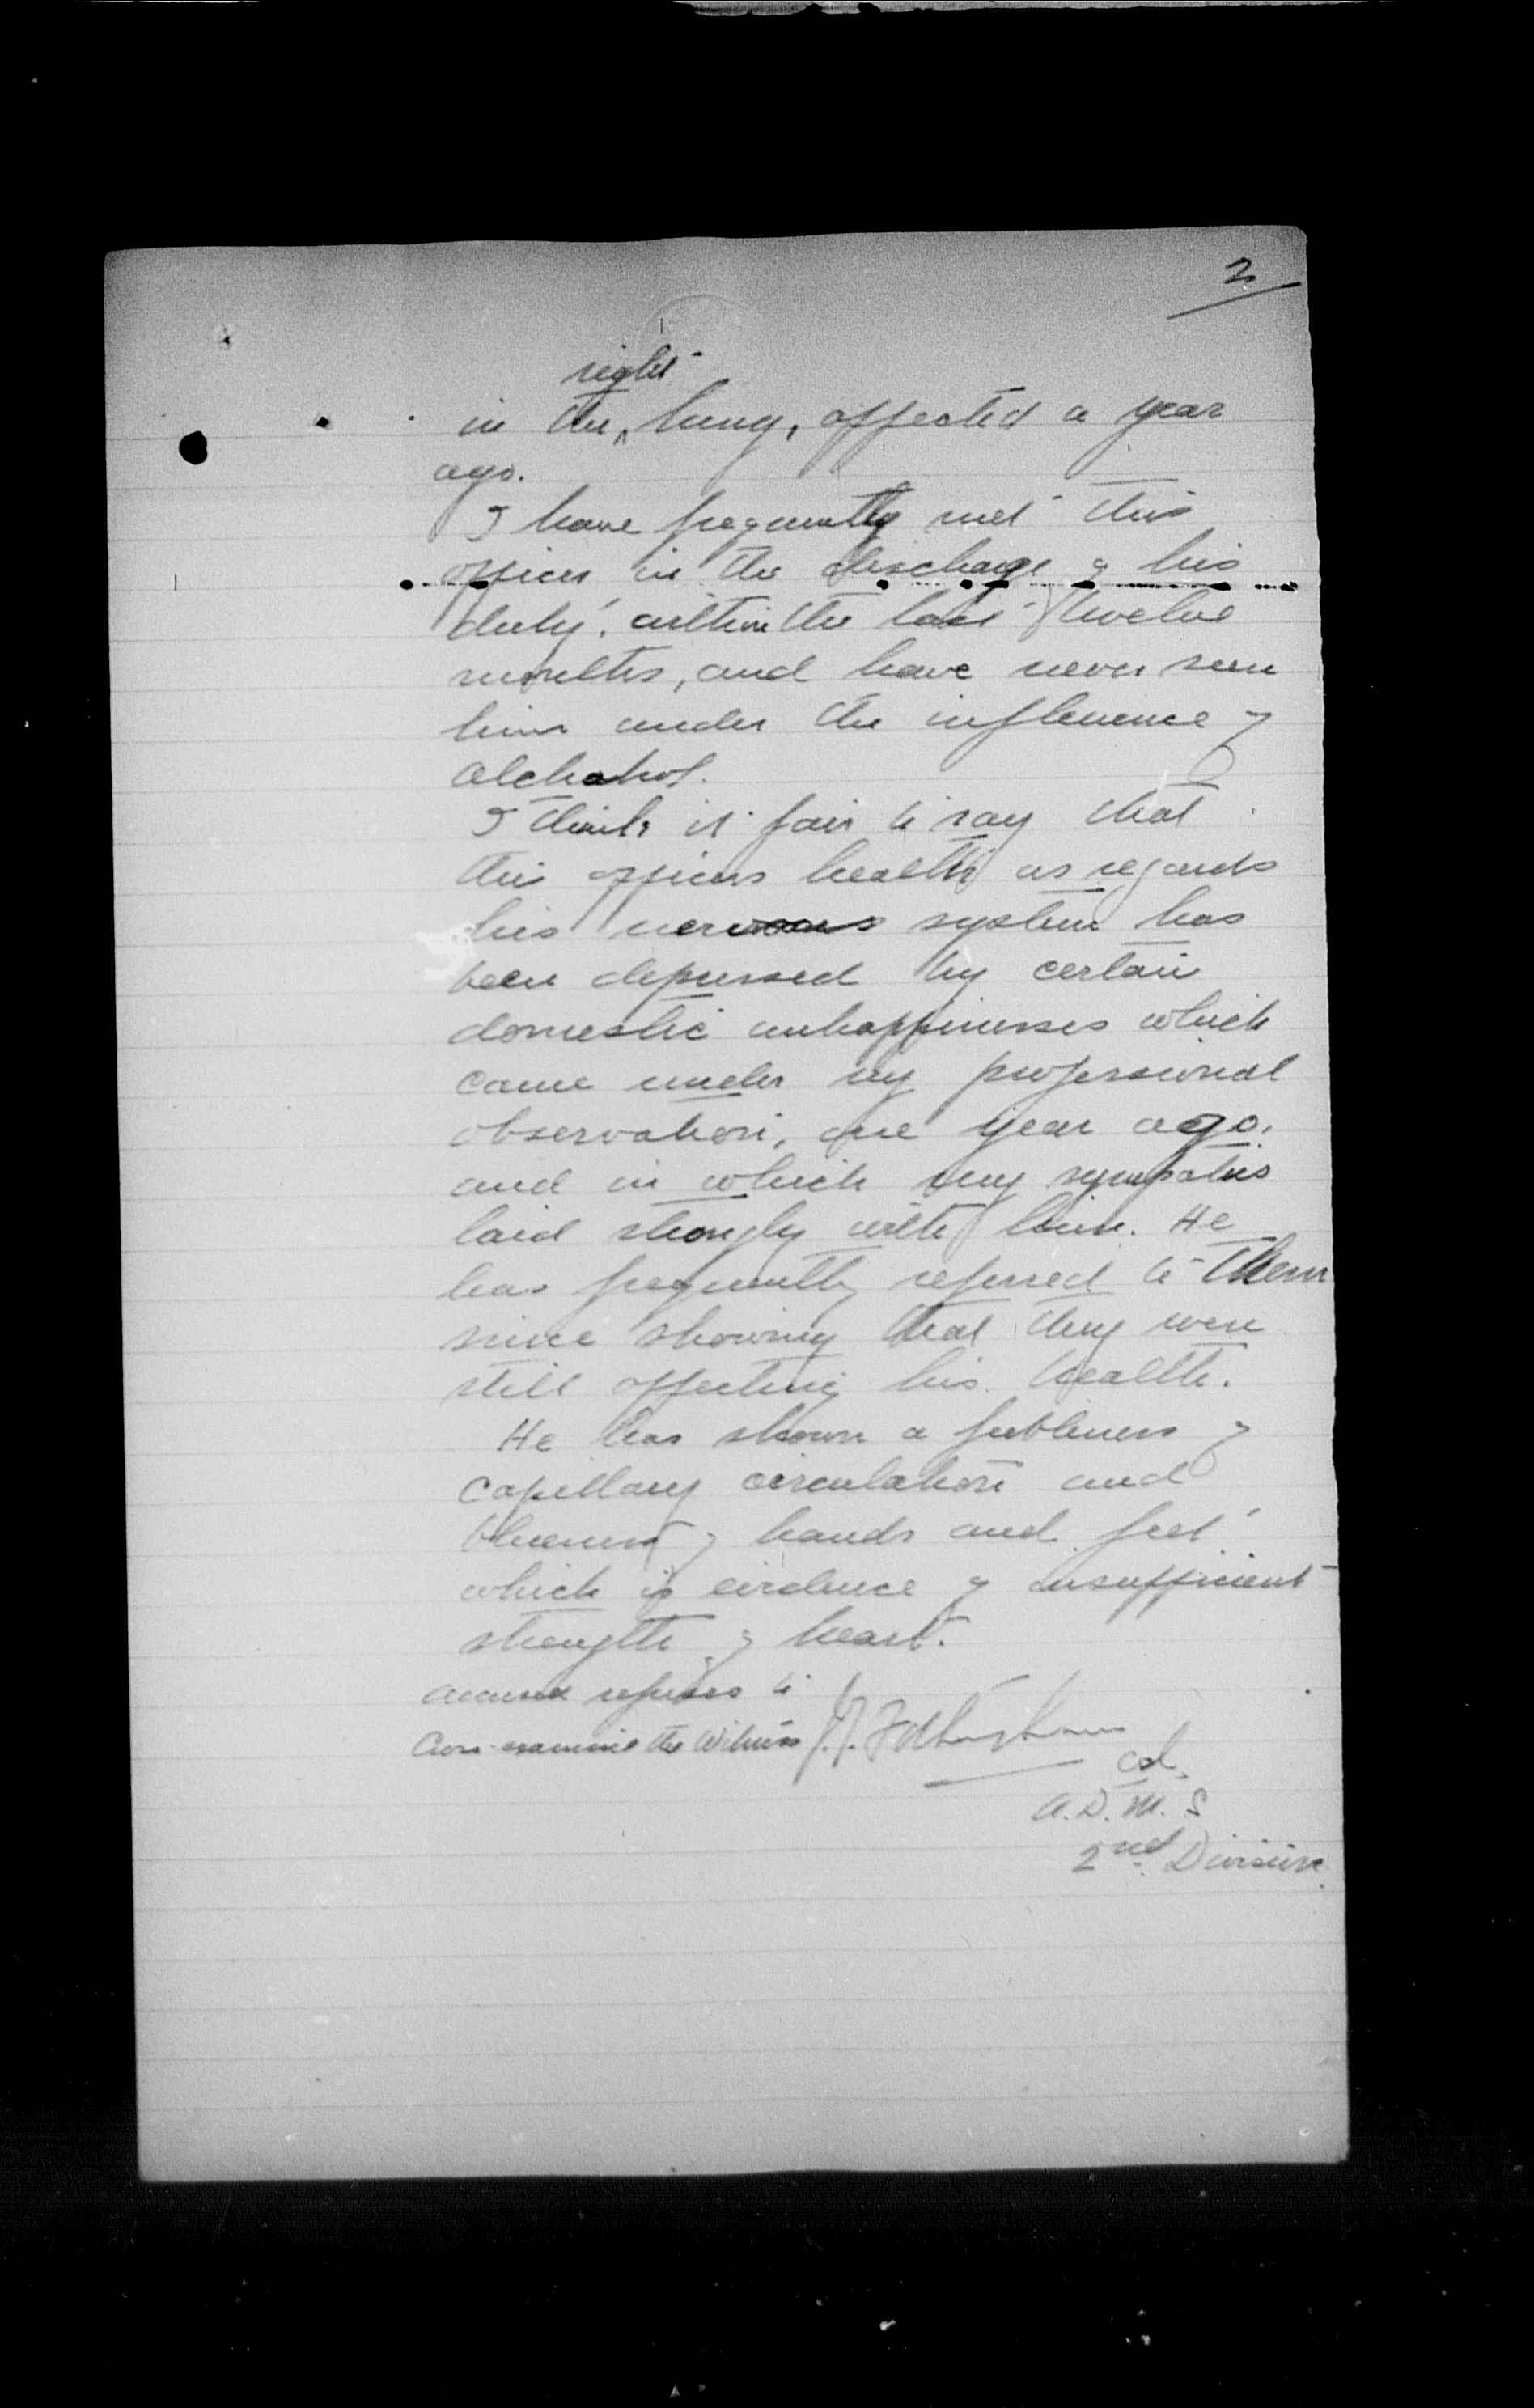 2
right
in the lung, affected a year
ago.
I have frequently met this
officer in the discharge of his
duty, within the last twelve
months, and have never seen
him under the influence of
alchahol.
I think it fair to say that
this officers health as regards
his nervous system has
been depressed by certain
domestic unhappinesses which
came under my professional
observation, one year ago.
and in which my sympathies
laid strongly with him. He
has frequently referred to them
since showing that they were
still affecting his health.
He has shown a feebleness of
capillary circulation and
blueness of hands and feet
which is evidence of insufficient
strength of heart.
Accused refuses to
Cross-examine the Witness J. T. Fotheringham
Col.
A.D.M.S
2nd Division